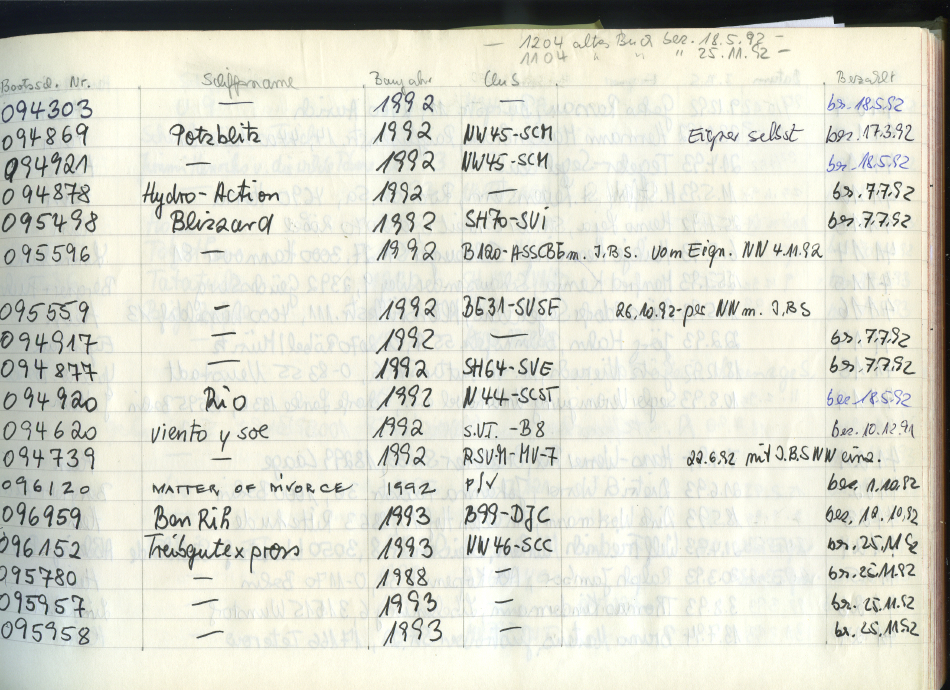 — 1204 altes Buch bez. 18.5.92 —
1104 " " " 25.11.92 —
Bootssch. Nr. Schiffsname Baujahr Club Bezahlt
094303 — 1992 bez. 18.5.92
094869 Potzblitz 1992 NW45-SCM Eigner selbst bez. 17.3.92
094921 — 1992 NW45-SCM bez. 18.5.92
094878 Hydro-Action 1992 — bez. 7.7.92
095498 Blizzard 1992 SH70-SVI bez. 7.7.92
095596 — 1992 m. I.B.S. vom Eign. NN 4.11.92
095559 — 1992 BE31-SVSF 26.10.92 per NN m. I.B.S
094917 — 1992 — bez. 7.7.92
094877 — 1992 SH64-SVE bez. 7.7.92
094920 Rio 1992 NW44-SCST bez. 18.5.92
094620 viento y soe 1992 S.VI. -B8 bez. 10.12.91
094739 — 1992 RSVM-MV-7 22.6.92 mit I.B.S NN
096120 MATTER OF DIVORCE 1992 bez. 1.10.92
096959 Ben RiR 1993 B99-DJC bez. 10.92
096152 Treibgutexpress 1993 NW46-SCC bz. 25.11.92
095780 — 1988 — bz. 25.11.92
095957 — 1993 — bz. 25.11.92
095958 — 1993 — bz. 25.11.92